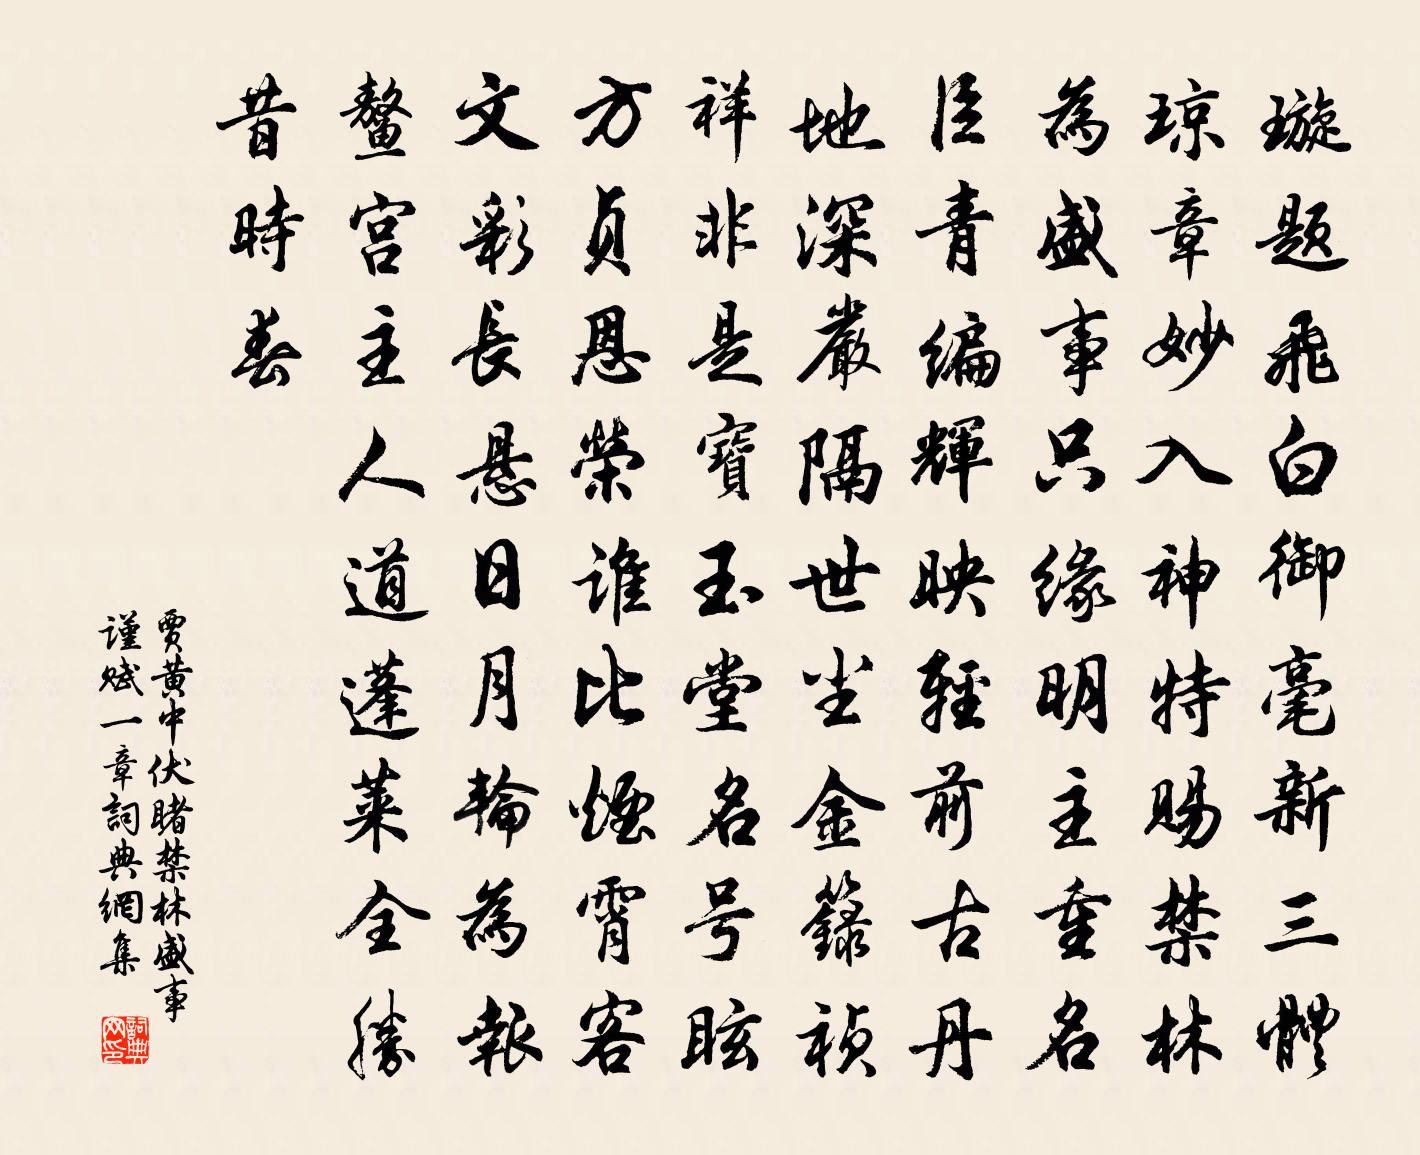 璇题飛白御毫新三體
琼章妙入神特賜禁林
為盛事只緣明主重名
臣青编輝映輕前古丹
地深嚴隔世坐金籙祯
祥非是寶玉堂名号眩
方貞恩榮谁比煙霄客
文彩長悬日月輪為報
鳌宫主人道蓬莱全勝
昔時春
贾黄中伏睹禁林盛事
谨赋一章詞典網集
詞典網印